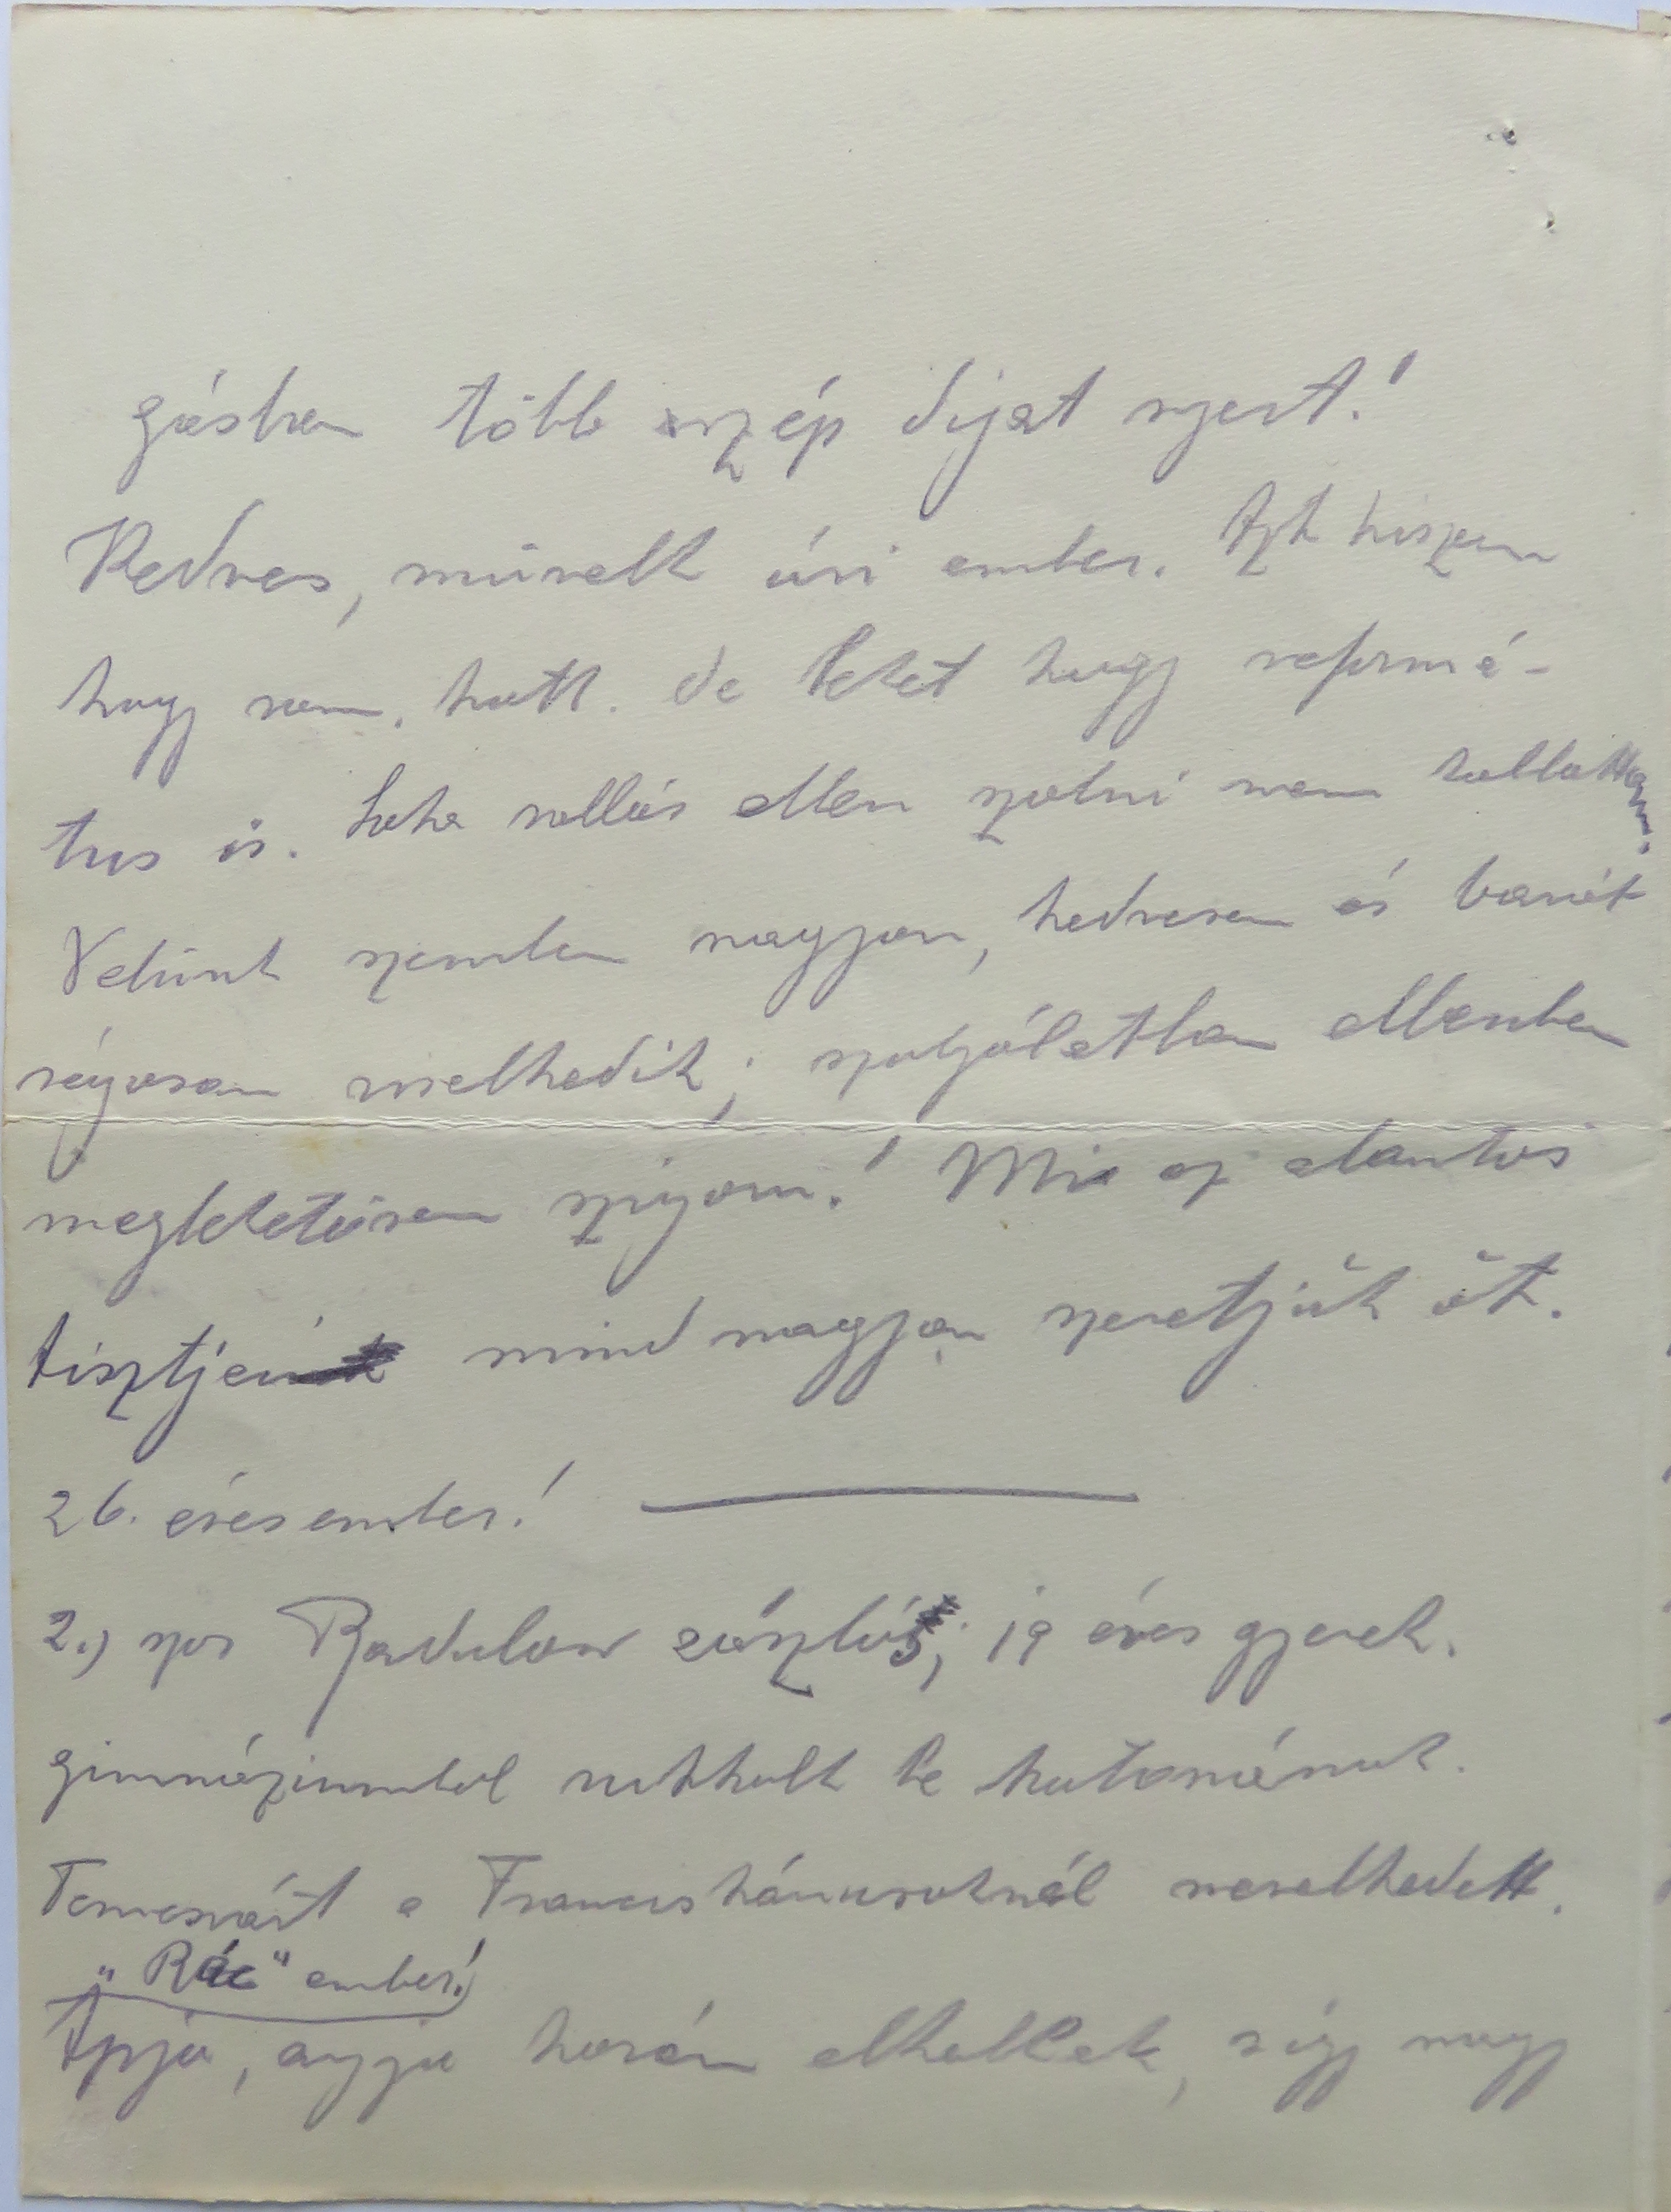 gásban több szép dijat nyert!
Kedves, müvelt úri ember. Azt hiszem
hogy rom. kath. de lehet hogy reformá-
tus is. Soha vallás ellen szolni nem hallottam.
Velünk szemben nagyon, kedvesen és barát
ságosan viselkedik; szolgálatban ellenben
meglehetösen szigorú! Mi az alantos
tisztjei mind nagyon szeretjük öt.
26. éves ember!
2.) Radulow zászlós; 19 éves gyerek.
gimnáziumbol rukkolt be katonának.
Temesvárt a Franciskánusoknál nevelkedett.
„Rác" ember!
Apja, anyja korán elhaltak, így nagy